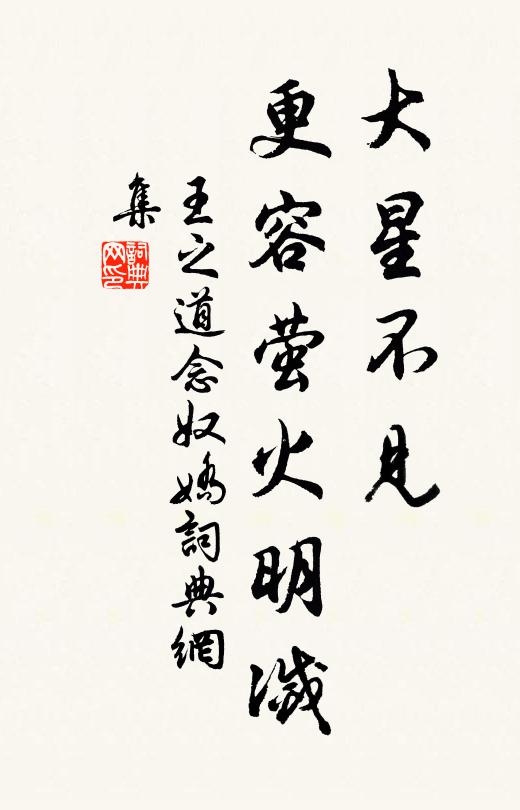 大星不見
更容萤火明滅
王之道念奴嬌詞典網
集
詞典
网印